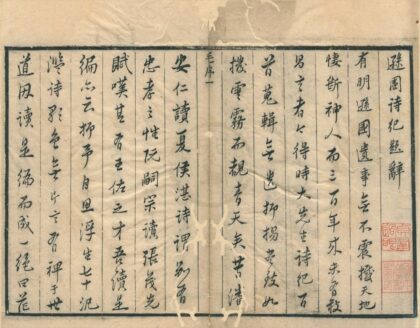 遜國詩紀題辭
有明遜國遺事無不震撼天地
悽斷神人而三百年來未敢
昌言者今得時大先生詩紀百
首蒐輯無遺抑揚盡致如
撥雲霧而覩青天矣昔潘
毛序一
安仁讀夏侯湛詩謂別有
忠孝之性阮嗣宗讀張茂先
賦嘆其有王佐之才吾讀是
編亦云抑予自浮生七十汎
濫詩歌無片言有裨于世
道因讀是編而成一絕曰茫